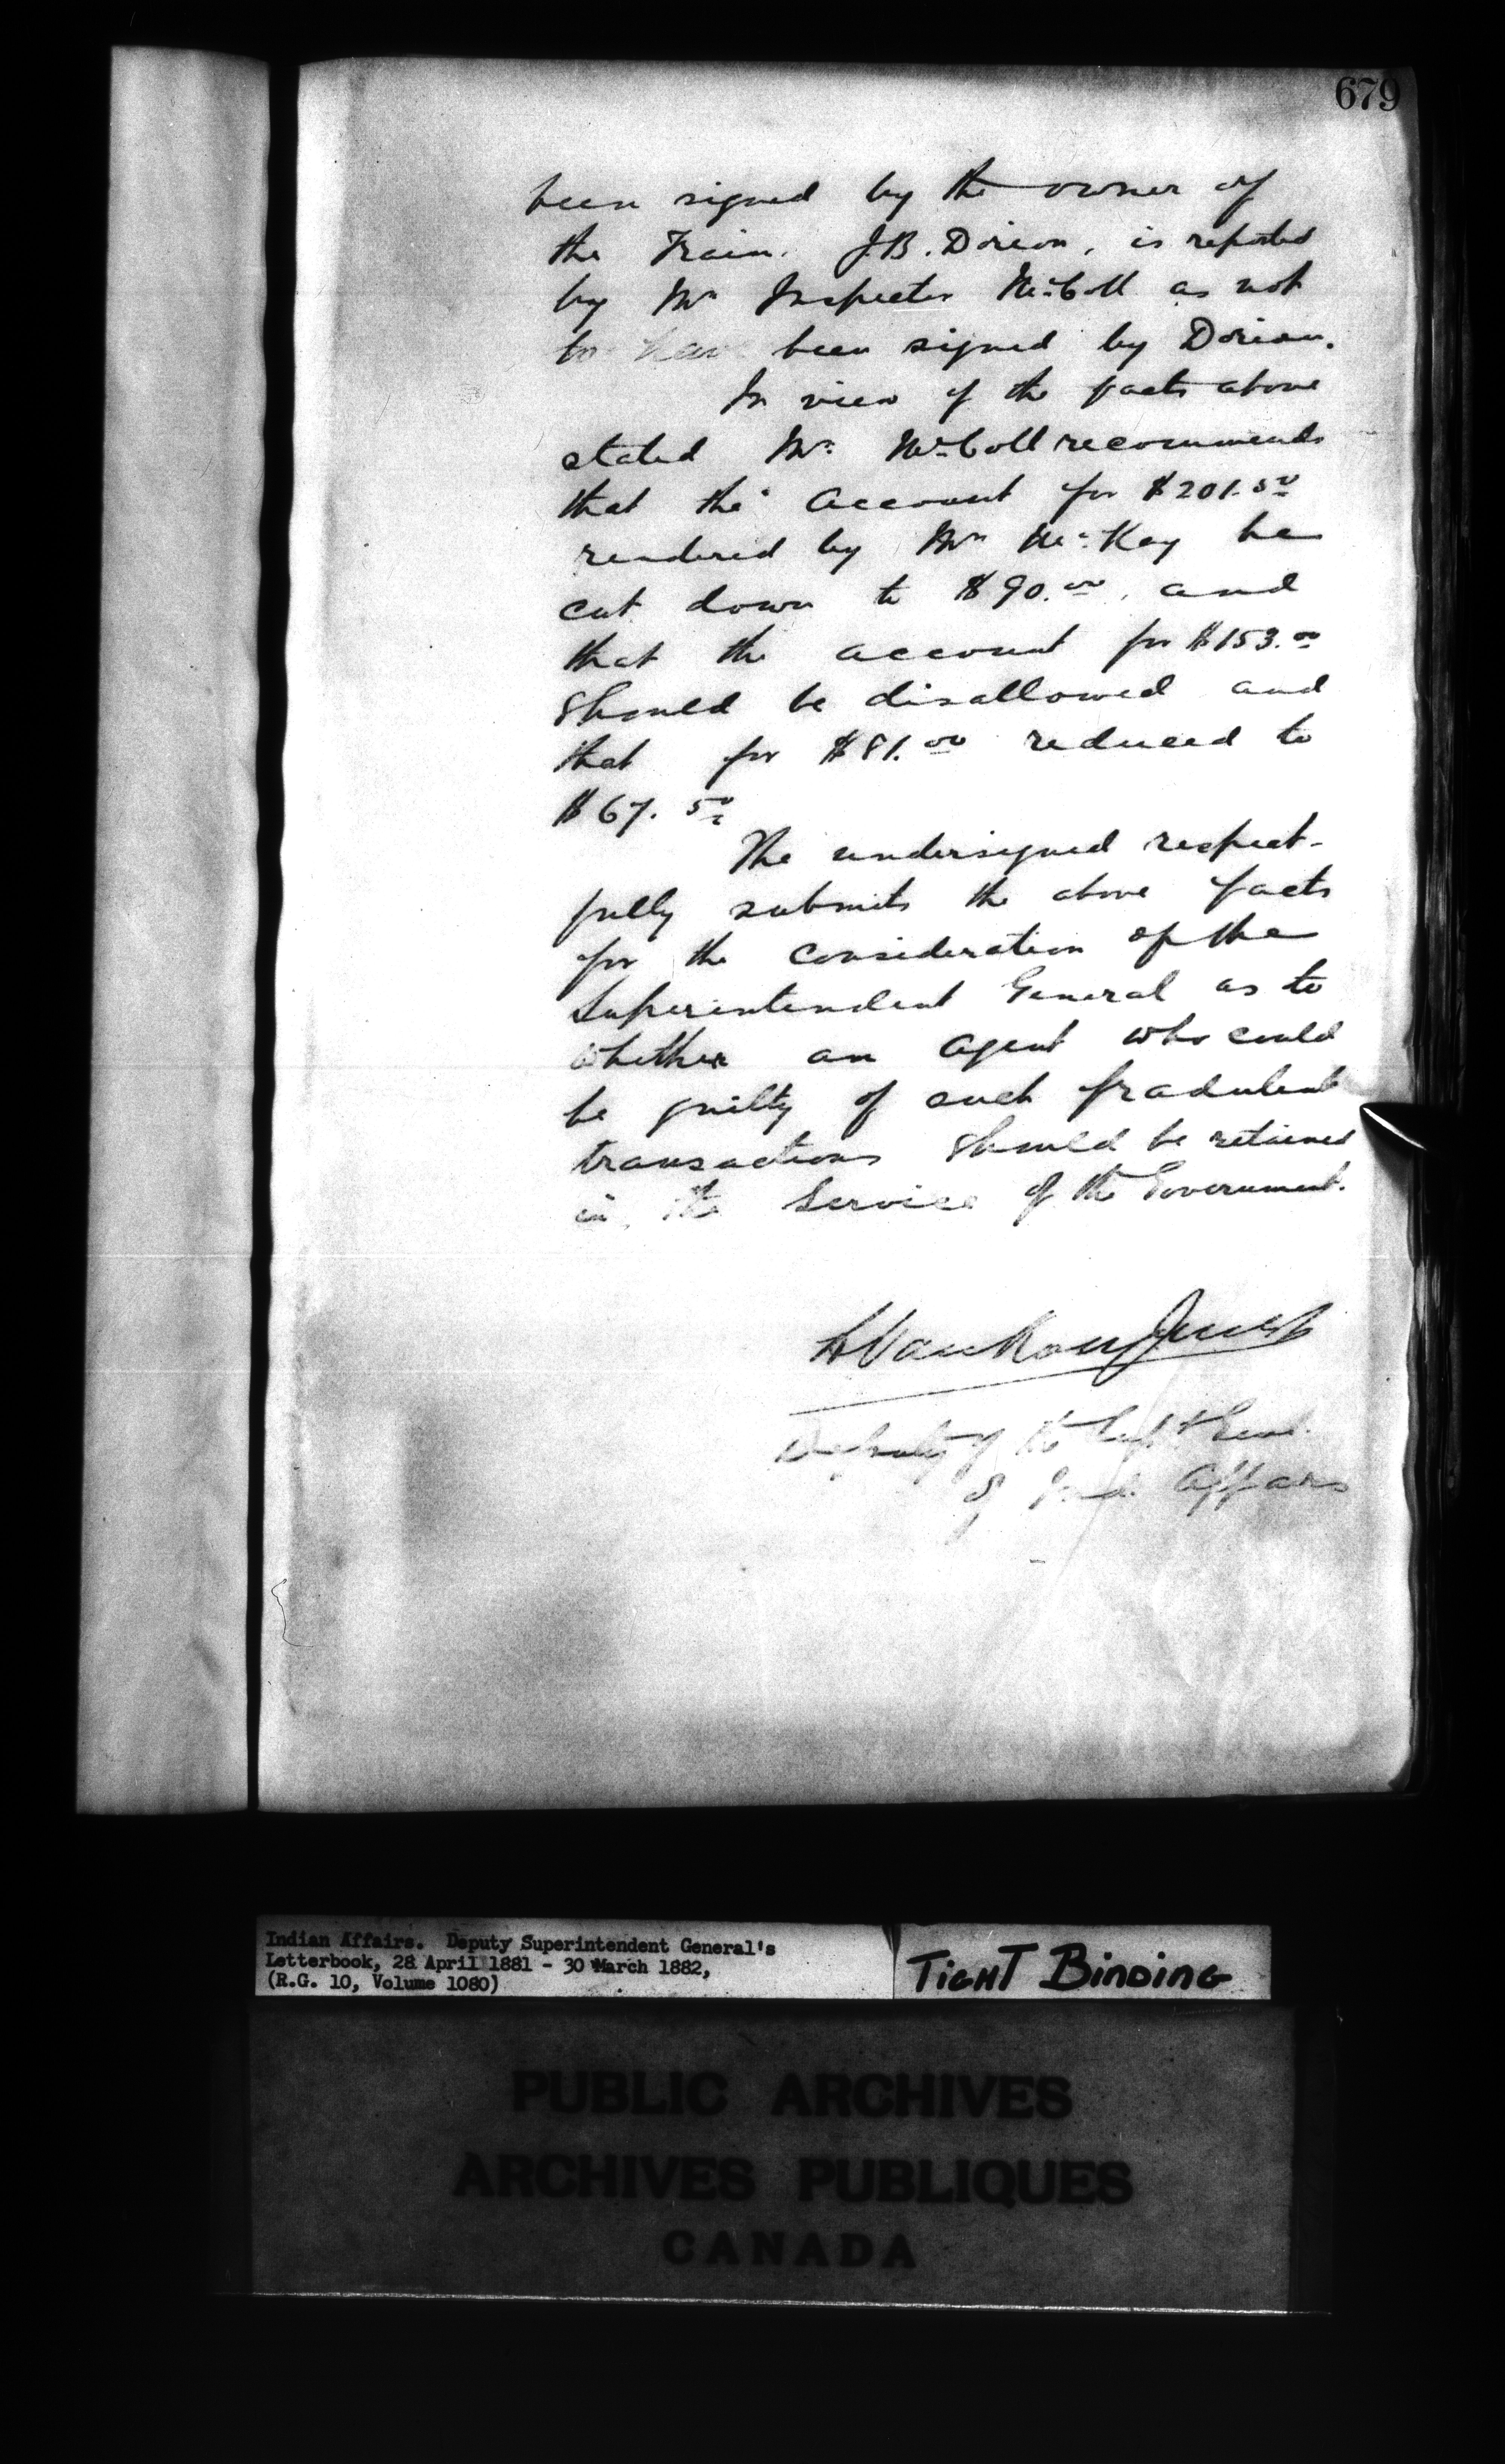 679
been signed by the owner of
the Train. J.B. Dorion, is reported
by Mr Inspector McColl as not
to have been signed by Dorion.
In view of the facts above
stated Mr. McColl recommends
that the Account for $201.50
rendered by Mr McKay be
cut down to $90.00, and
that the account for $153.00
should be disallowed and
that for $81.00 reduced to
$67.50
The undersigned respect-
fully submits the above facts
for the consideration of the
Superintendent General as to
whether an agent who could
be guilty of such fradulent
transactions should be retained
in the Service of the Government.
L VanKoughnet
Deputy of the Supt Genl.
of Ind. Affairs
Indian Affairs. Deputy Superintendent General's
Letterbook, 28 April 1881 - 30 March 1882,
(R.G. 10, Volume 1080)
TIGHT BINDING
PUBLIC ARCHIVES
ARCHIVES PUBLIQUES
CANADA